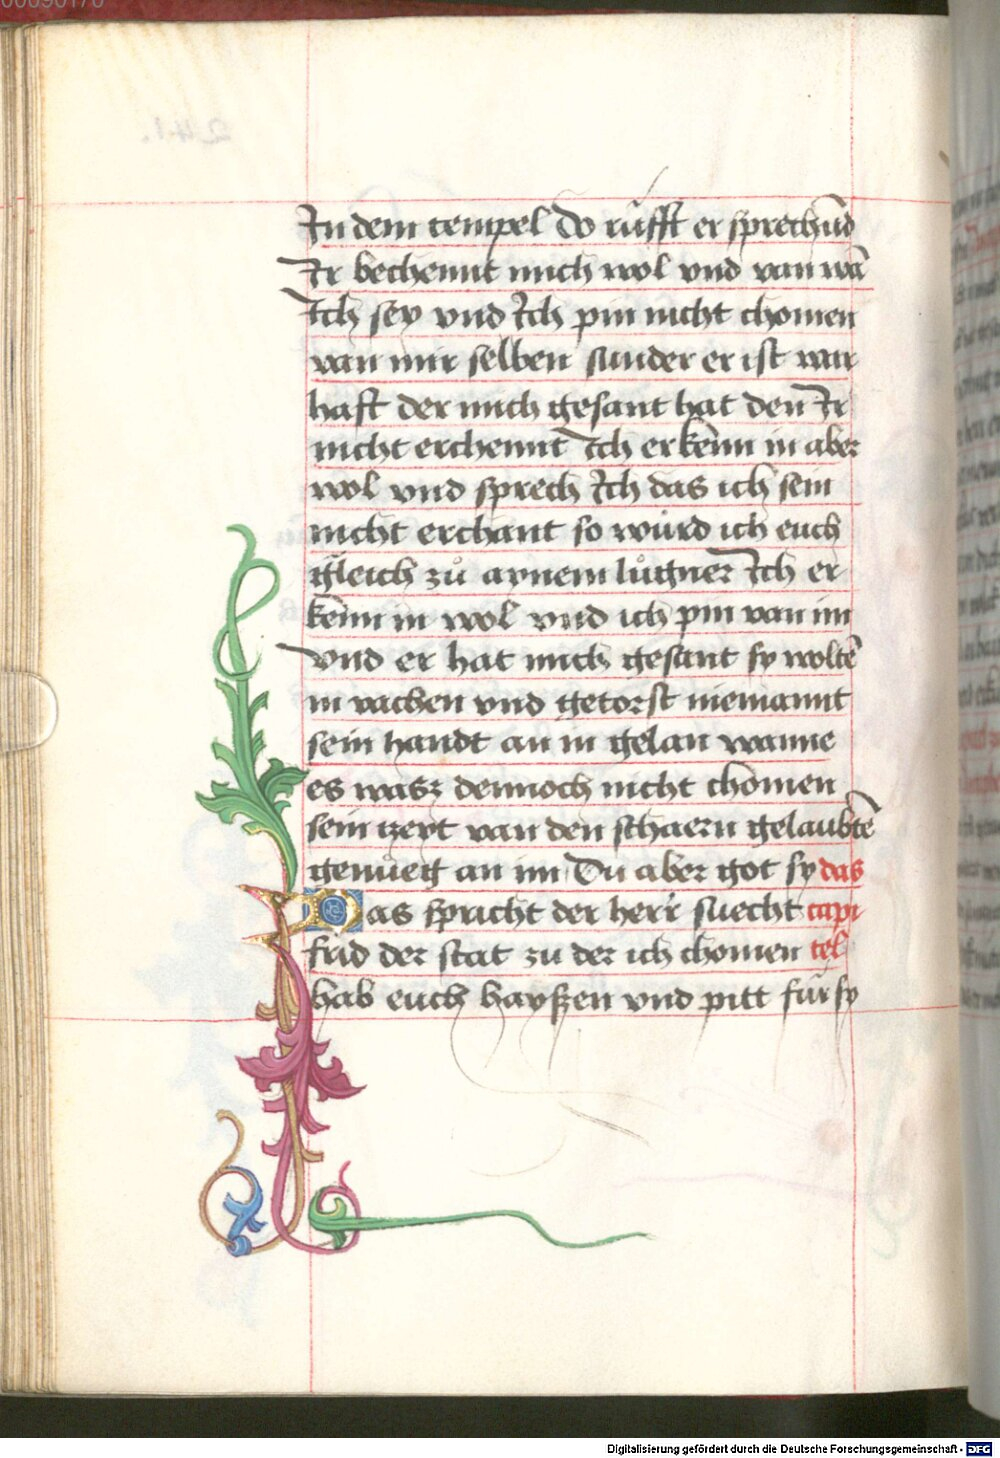 In dem tempel do růfft er sprechūd
Ir bechennt mich wol vnd van wā
Ich sey vnd Ich pin nicht chomen
van mir selben sunder er ist war
hafft der mich gesant hat den Ir
nicht erchennt Ich erkenn in aber
wol vnd sprech Ich das ich sein
nicht erchant so wurd ich euch
gleich zů aynem lůgner Ich er
kenn in wol vnd ich pin van im
vnd er hat mich gesant sy woltē
in vachen vnd getorst niemannt
sein handt an in gelan wanne
es wasz dennoch nicht chomen
sein tzeyt van den scharn gelaubtē
genueg an im Du aber got sy das
Das spricht der herr suecht capi
frid der stat zu der ich chomen tel
hab euch hayssen vnd pitt für sy
Digitalisierung gefördert durch die Deutsche Forschungsgemeinschaft - DFG